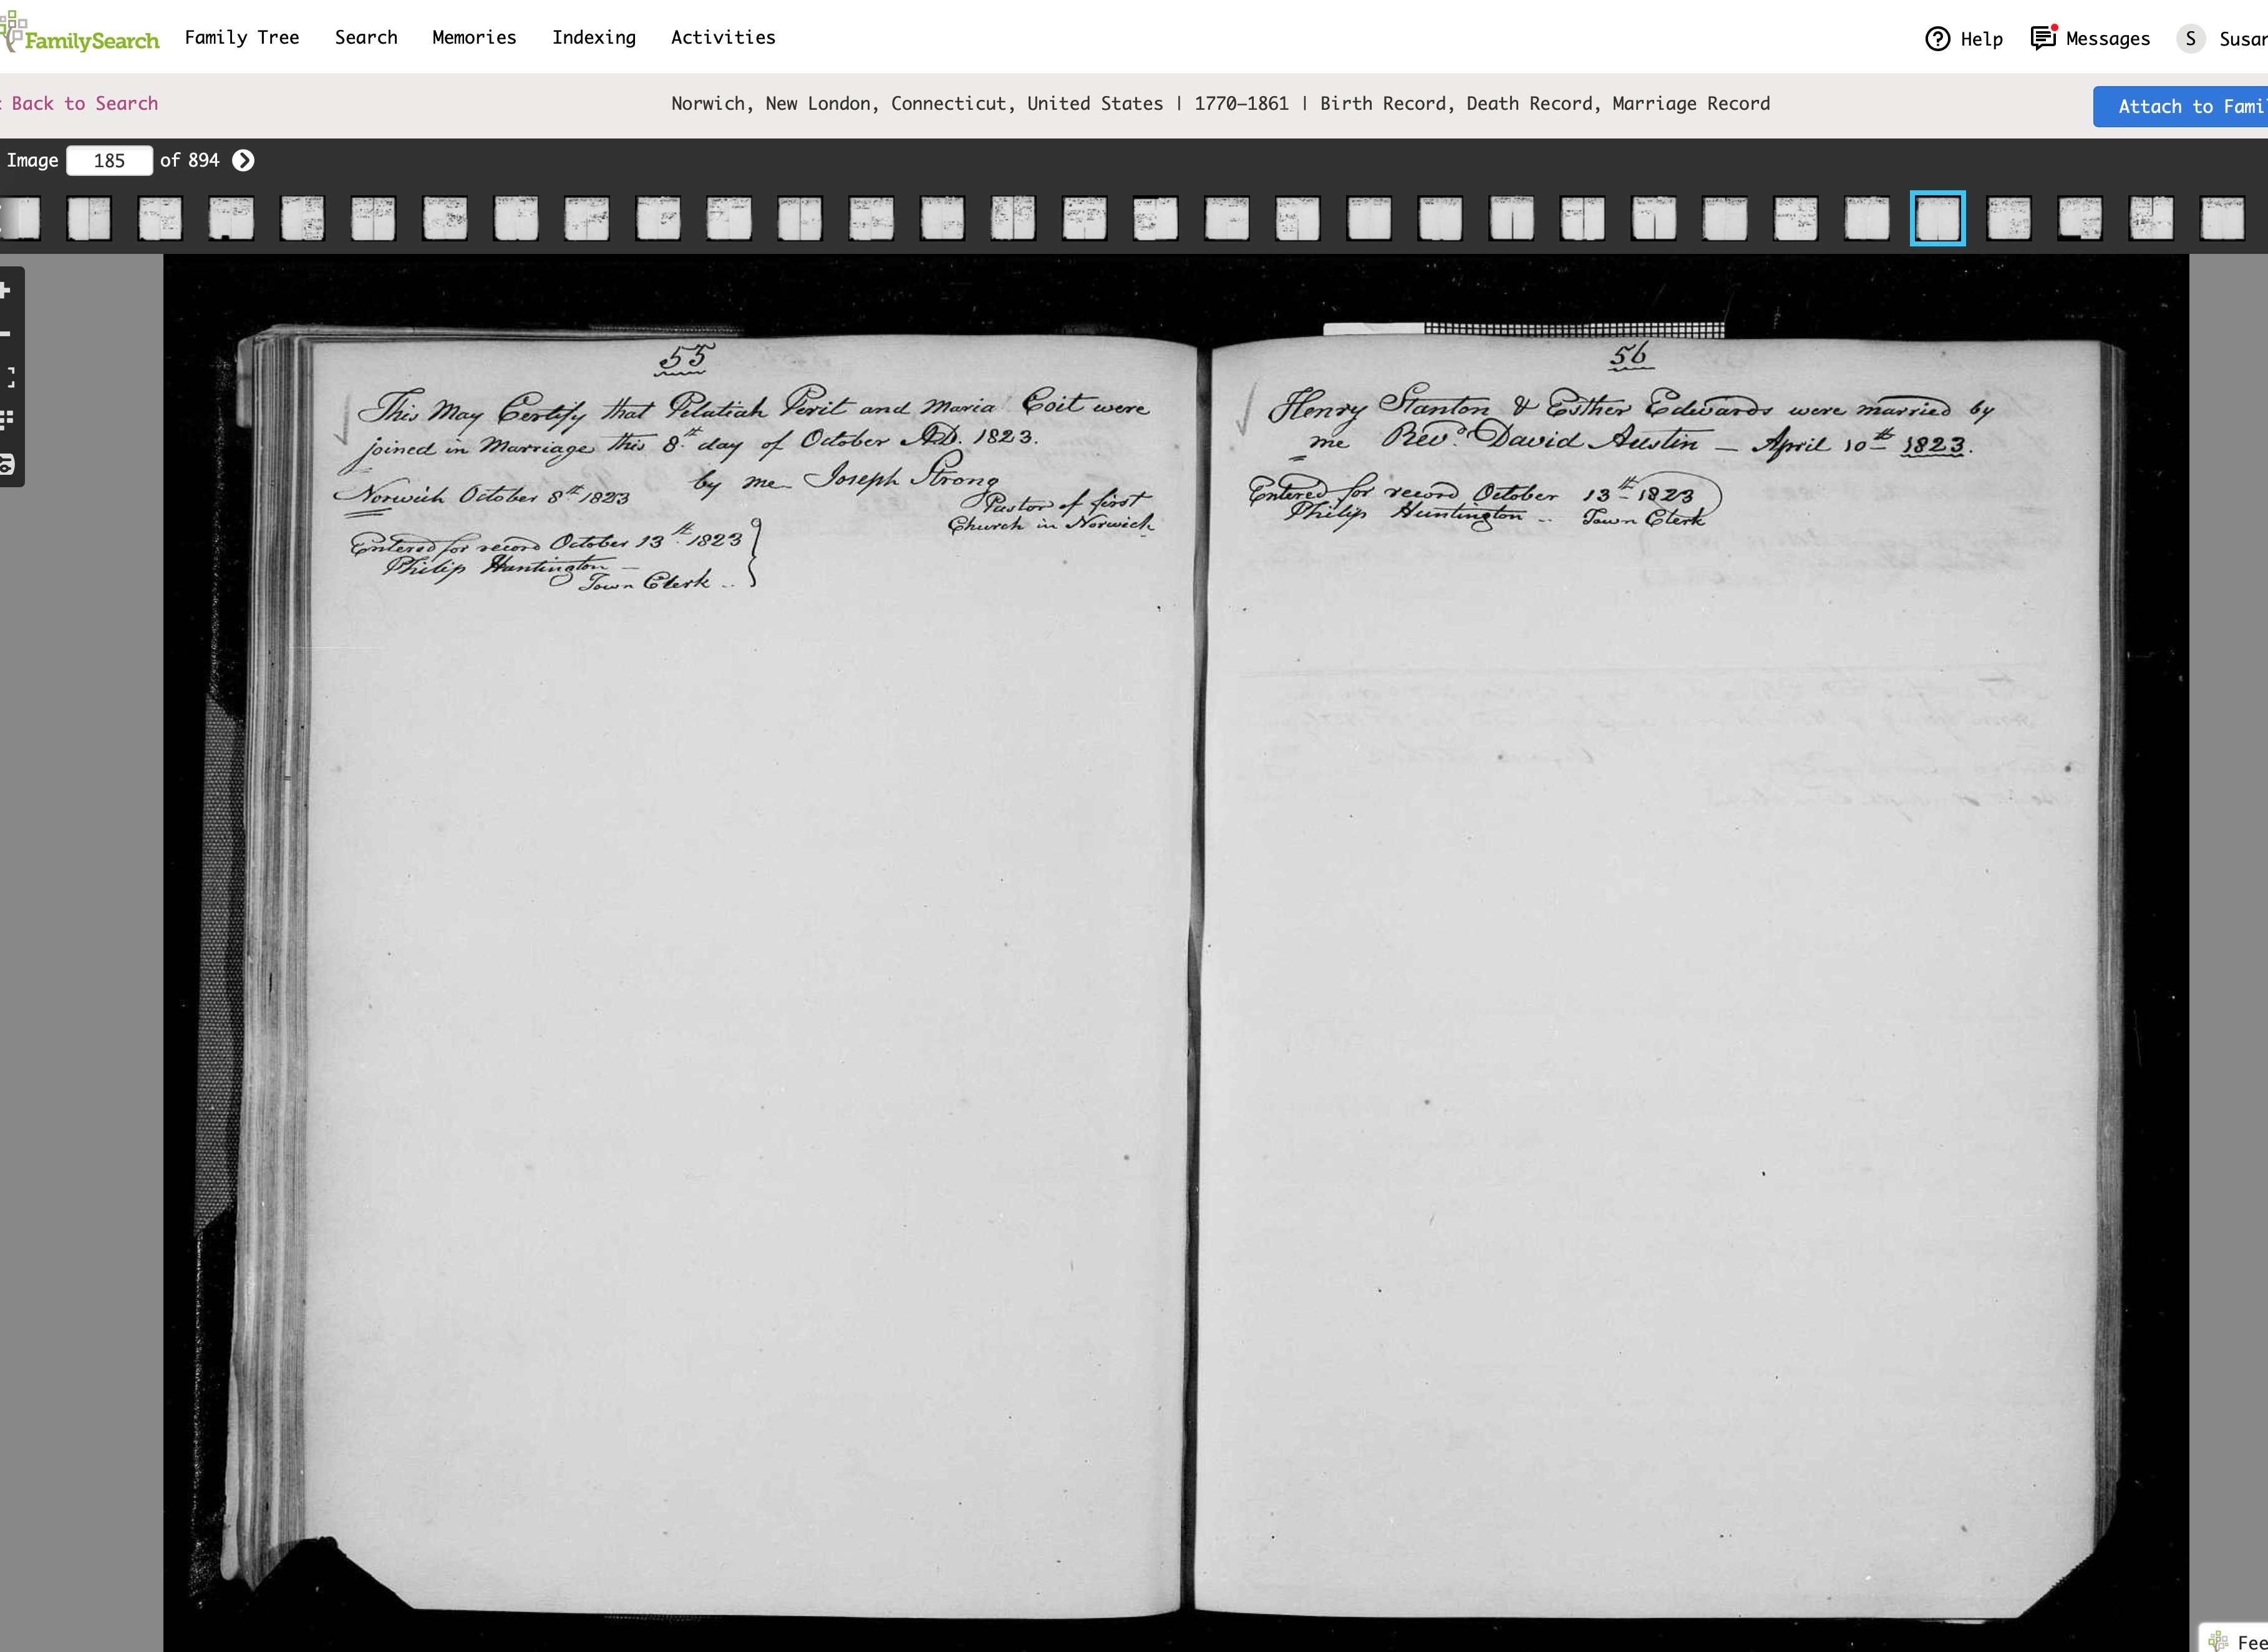 FamilySearch Family Tree Search Memories Indexing Activities Help Messages S Susan
Back to Search Norwich, New London, Connecticut, United States | 1770–1861 | Birth Record, Death Record, Marriage Record Attach to Fami
Image 185 of 894
55
This May Certify that Pelatiah Perit and Maria Coit were
joined in Marriage this 8th day of October AD. 1823.
by me Joseph Strong
Pastor of first
Church in Norwich
Norwich October 8th 1823
Entered for record October 13th 1823
Philip Huntington
Town Clerk
56
Henry Stanton & Esther Edwards were married by
me Revd. David Austin — April 10th 1823.
Entered for record October 13th 1823
Philip Huntington .. Town Clerk
Fee